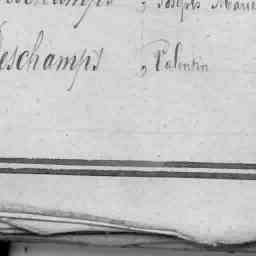 Deschamps , Joseph Marie
Deschamps , Valentin